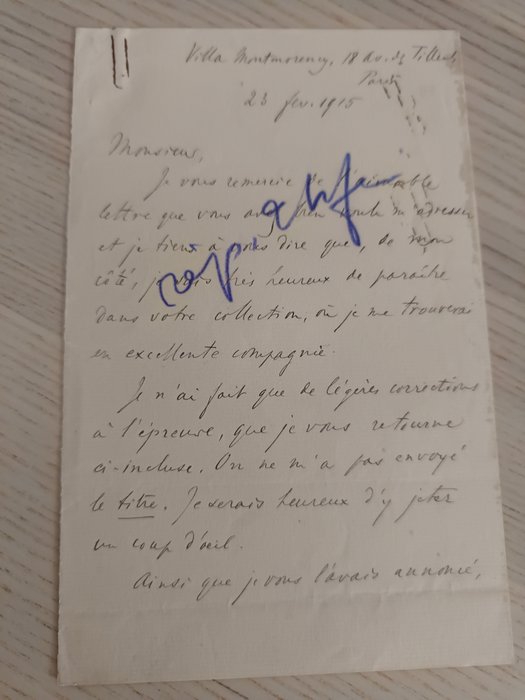 Villa Montmorency, 18 Av. des Tilleuls
Paris
23 fev. 1915
Monsieur,
Je vous remercie de l'aimable
lettre que vous avez bien voulu m'adresser
et je tiens à vous dire que, de mon
côté, je suis très heureux de paraître
dans votre collection, où je me trouverai
en excellente compagnie.
Je n'ai fait que de légères corrections
à l'épreuve, que je vous retourne
ci-incluse. On ne m'a pas envoyé
le titre. Je serais heureux d'y jeter
un coup d'oeil.
Ainsi que je vous l'avais annoncé,